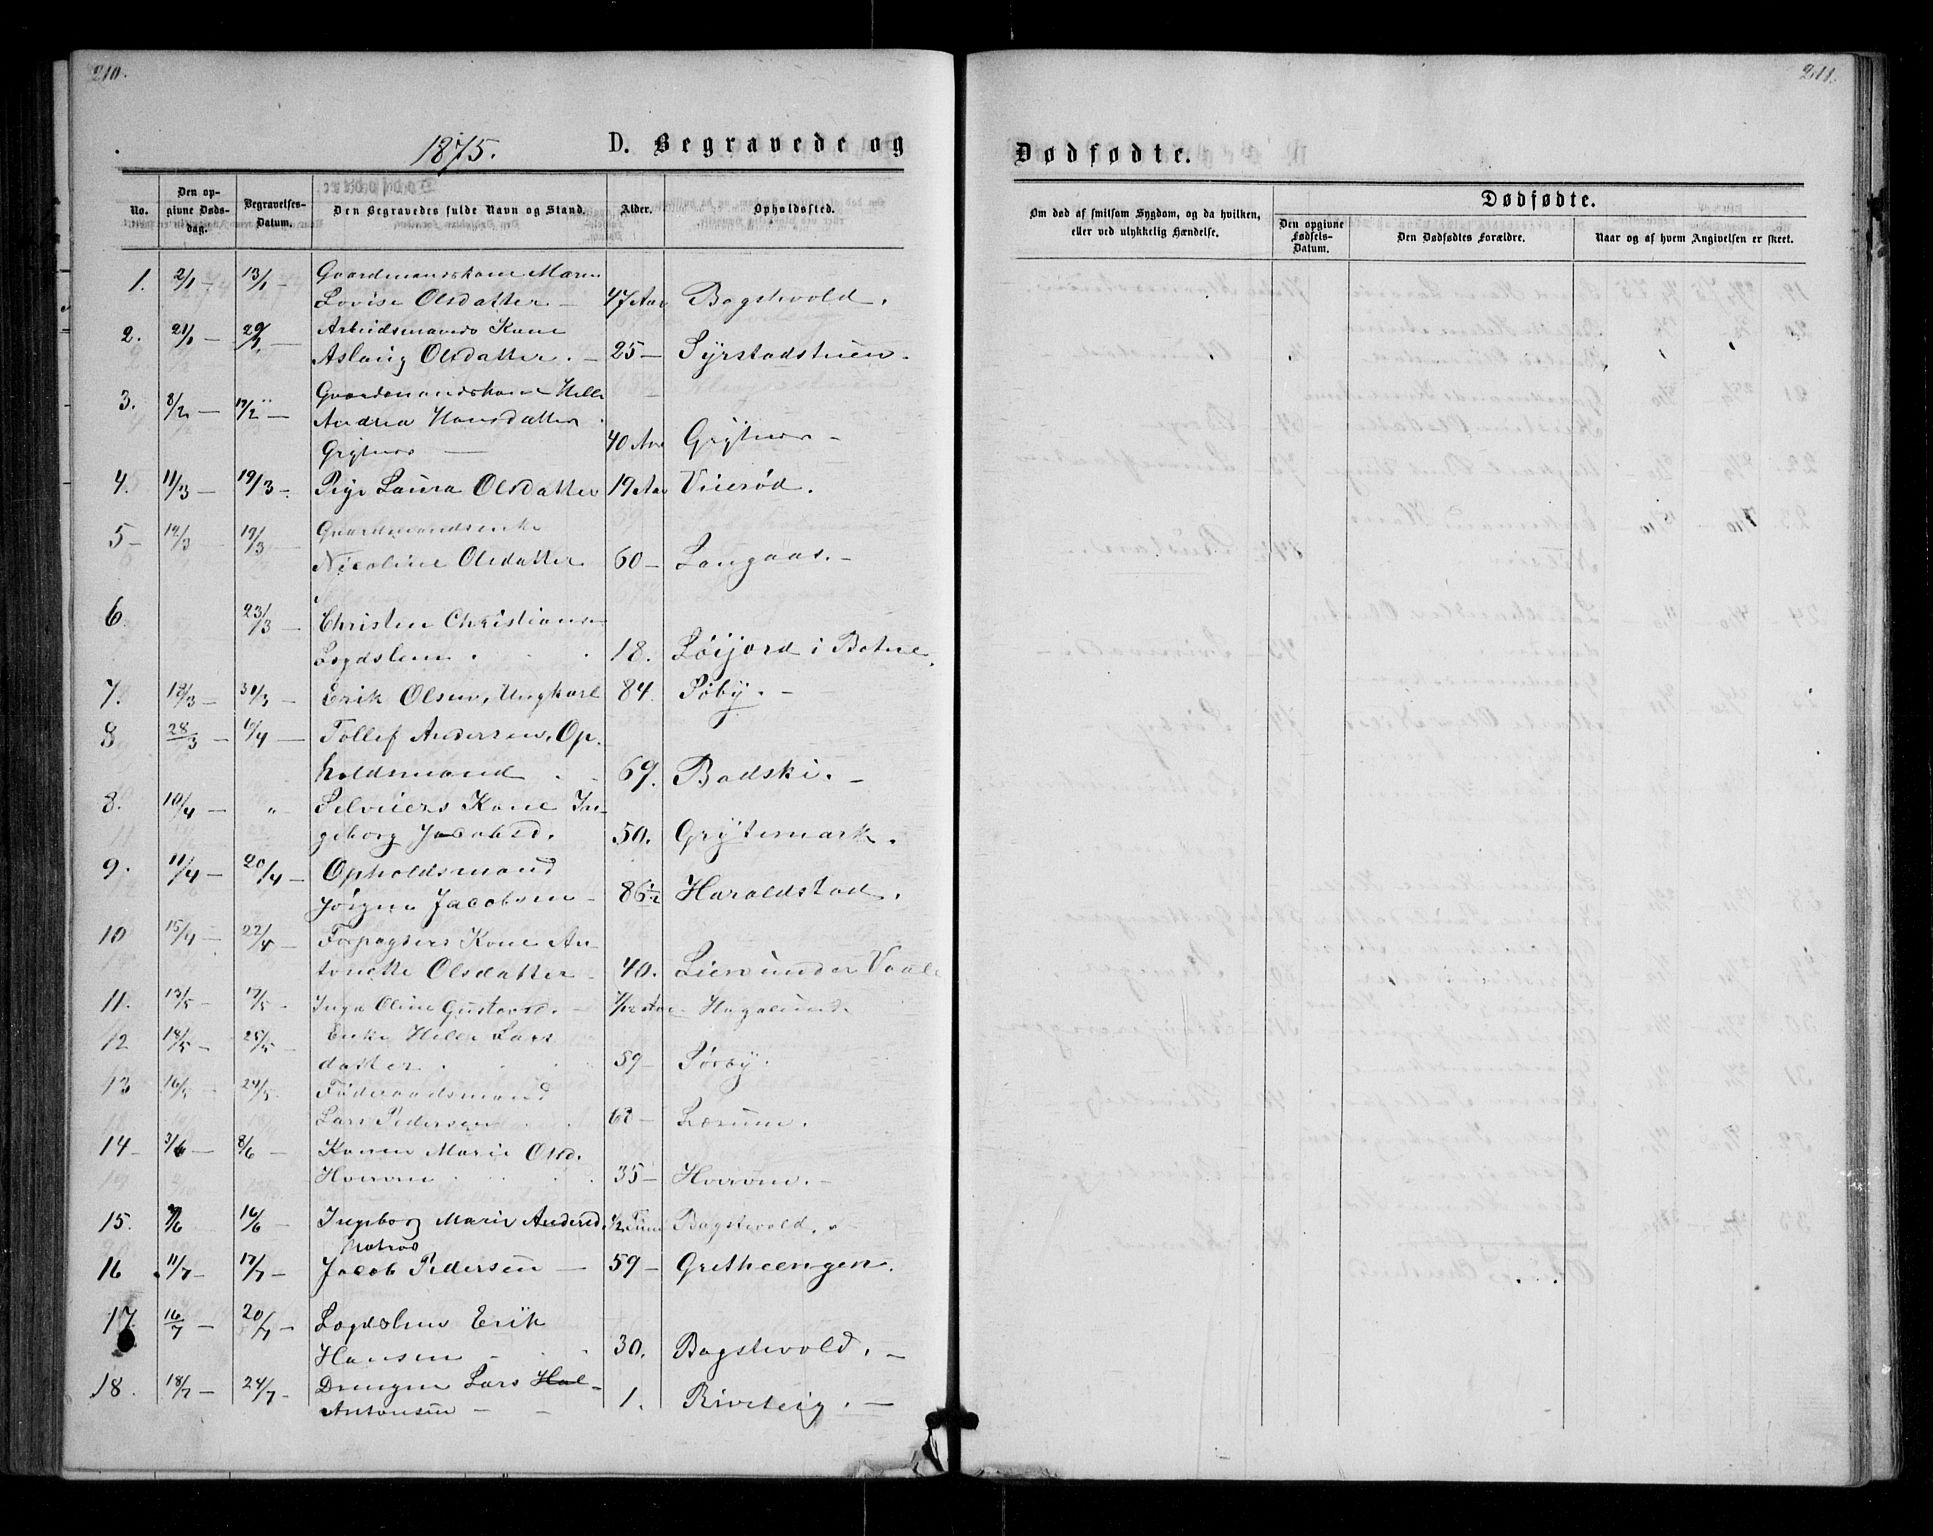 210.
1875.
D. Begravede og
No.
Den opgivne Dødsdag.
Begravelses-Datum.
Den Begravedes fulde Navn og Stand.
Alder.
Opholdssted.
1. 2/1 — 13/1 Gaardmandskone Maren
Lovise Olsdatter — 47 Aar Bogstvold.
2. 21/1 — 29/1 — Arbeidsmands Kone
Aslaug Olsdatter. — 25 — Syrstadstuen.
3. 8/2 — 17/2 — Gaardmandskone Helle
Andrea Hansdatter
Grytnes — 40 Aar Grytnes —
4. 11/3 — 19/3 — Pige Laura Olsdatter 19 Aar Vierød.
5 — 14/3 — 19/3 — Gaardmandsenke
Nicoline Olsdatter 60 — Langaas. —
6. 23/3 — Christen Christians
Logdslem 18. Løijord i Botne.
7. 19/3 — 31/3 — Erik Olsen, Ungkarl 84. Søby. —
8 28/3 — 6/4 — Tollef Andersen, Op-
holdsmand 69. Badski. —
8. 10/4 — „ Selveiers Kone In-
geborg Jacobsd. 50. Grytemark.
9. 11/4 — 20/4 — Opholdsmand
Jørgen Jacobsen — 86 1/2 Haraldstad.
10 15/4 — 22/4 — Forpagters Kone An-
tonette Olsdatter — 40. Lien under Vaale
11. 13/5 — 17/5 — Inga Oline Gustavsd. — 7/12 Aar — Hagalund.
12 18/5 — 25/5 — Enke Helle Lars
datter 59 — Sørby.
13 16/5 — 24/5. Føderaadsmand
Lars Pedersen 60 — Lærum.
14 — 3/6 — 8/6 Konen Marie Olsd.
Hverven 35 — Hverven. —
15. 16/6 — Ingeborg Marie Andersd. 1/2 Time Bogstvold. —
Matros
16 11/7 — 17/7 — Jacob Pedersen — 59 — Gretheengen.
17. 16/7 — 20/7 — Logdslem Erik
Hansen — 30. Bogstvold. —
18. 18/7 — 24/7 — Drengen Lars Hal-
Antonsen — — 1. Riveteig. —
211.
Dødfødte.
Om død af smitsom Sygdom, og da hvilken,
eller ved ulykkelig Hændelse.
Dødfødte.
Den opgivne Fødsels-Datum.
Den Dødfødtes Forældre.
Naar og af hvem Angivelsen er skeet.